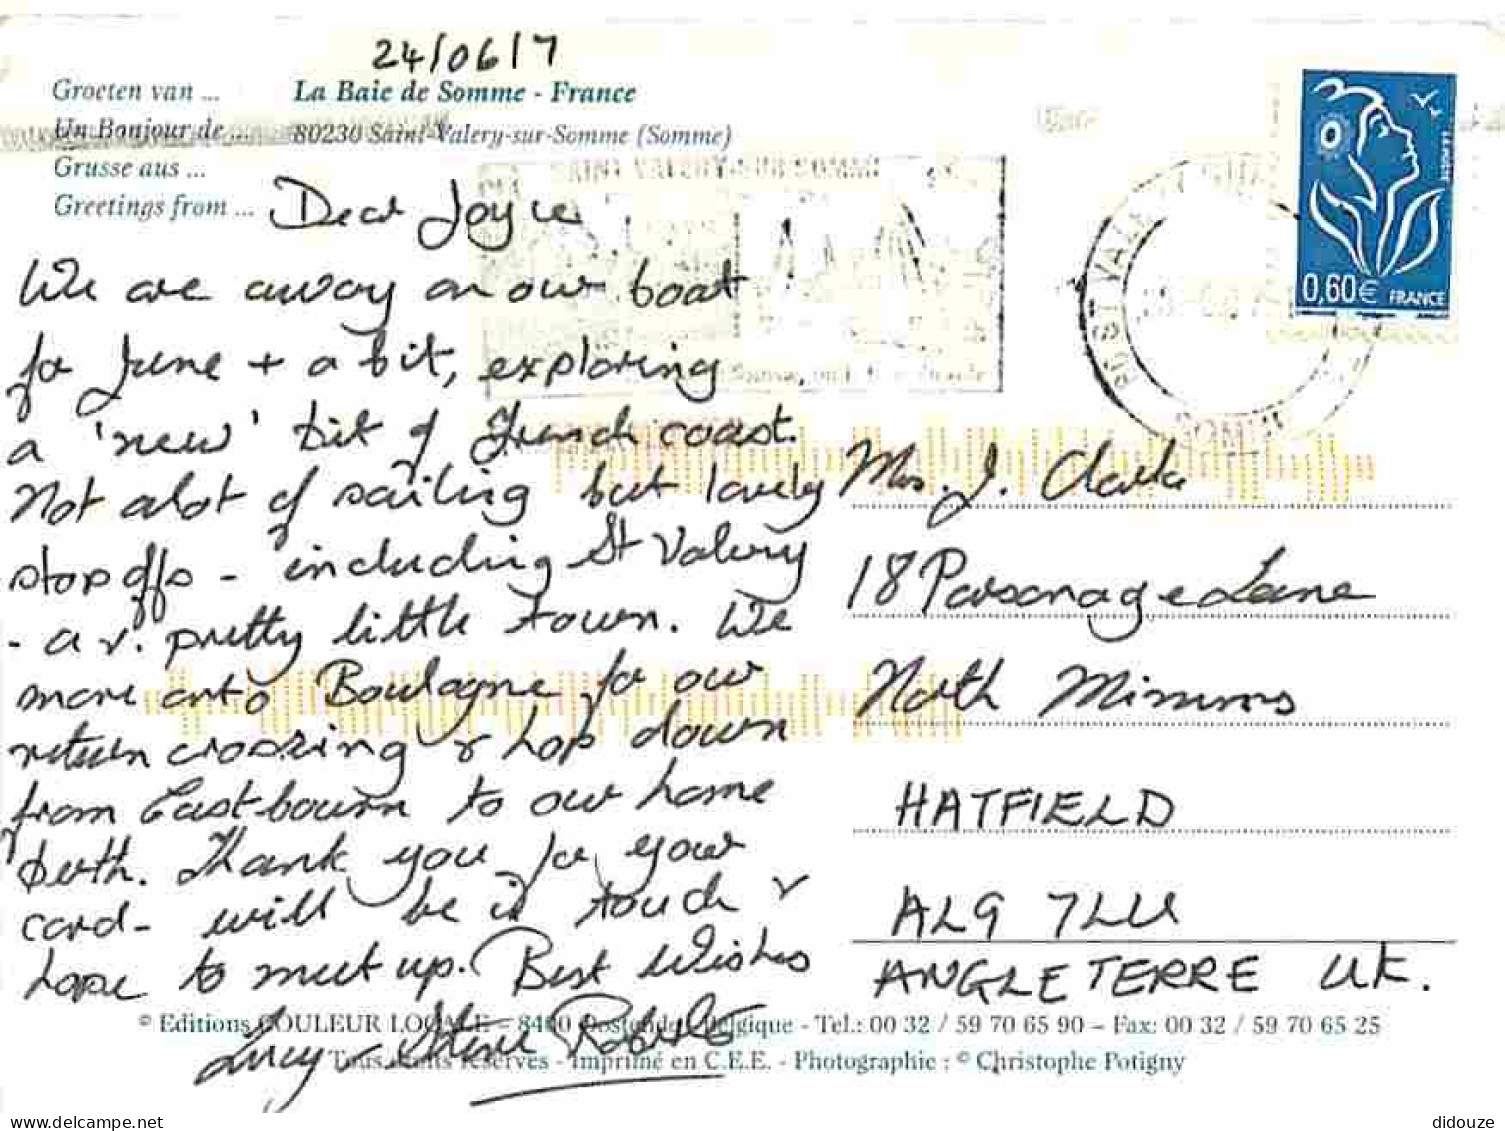 24/06/7
Groeten van ...
La Baie de Somme - France
Un Bonjour de ...
80230 Saint-Valery-sur-Somme (Somme)
Grusse aus ...
Greetings from ...
Dear Joyce
We are away on our boat
for June + a bit, exploring
a 'new' bit of French coast.
Not alot of sailing but lovely
stop offs - including St Valery
- a v. pretty little town. We
move onto Boulogne for our
return crossing & hop down
from Eastbourn to our home
berth. Thank you for your
card - will be in touch &
hope to meet up. Best Wishes
Lucy & Steve Roberts
LA POSTE
0,60€ FRANCE
Mrs. J. Clarke
18 Parsonage Lane
North Mimms
HATFIELD
AL9 7LU
ANGLETERRE UK.
© Editions COULEUR LOCALE - 8400 Oostende - Belgique - Tel.: 00 32 / 59 70 65 90 – Fax: 00 32 / 59 70 65 25
Tous droits réservés - Imprimé en C.E.E. - Photographie : © Christophe Potigny
delcampe.net
didouze